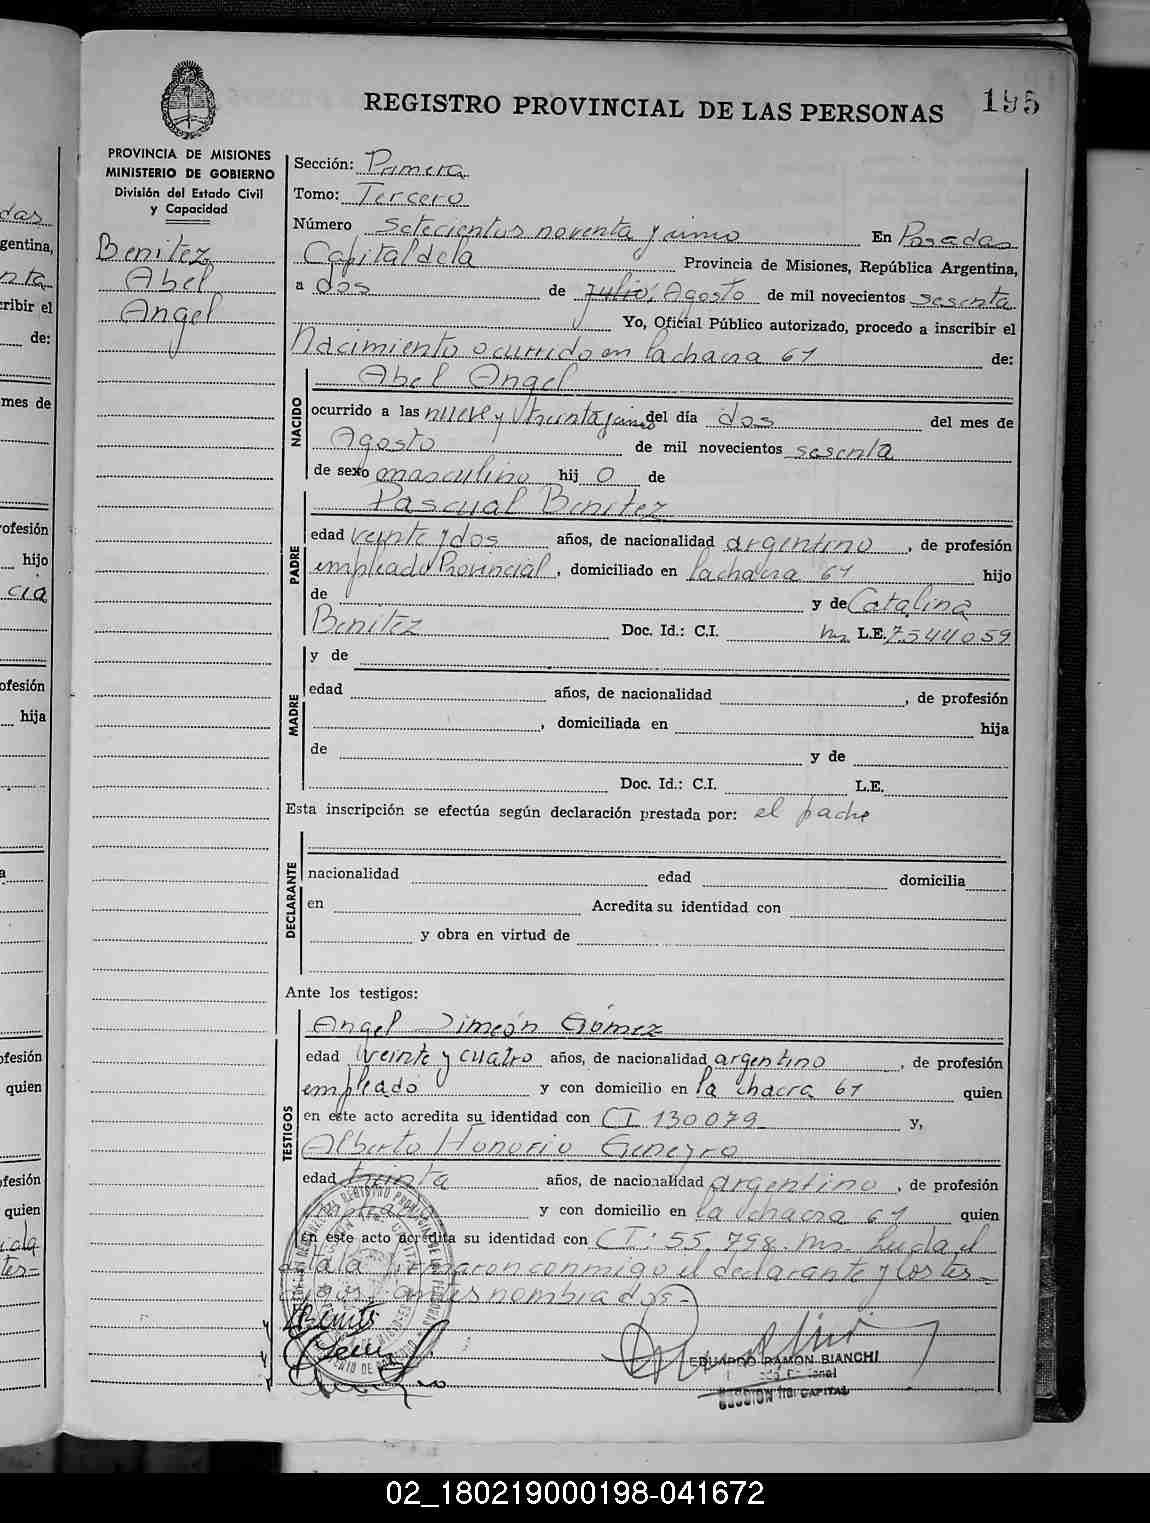 REGISTRO PROVINCIAL DE LAS PERSONAS
195
PROVINCIA DE MISIONES
MINISTERIO DE GOBIERNO
División del Estado Civil
y Capacidad
Benitez
Abel
Angel
Sección: Primera
Tomo: Tercero
Número Setecientos noventa y uno En Posadas
Capital de la Provincia de Misiones, República Argentina,
a dos de julio; Agosto de mil novecientos sesenta
Yo, Oficial Público autorizado, procedo a inscribir el
Nacimiento ocurrido en la chacra 61 de:
NACIDO
Abel Angel
ocurrido a las nueve y treinta y cinco del día dos del mes de
Agosto de mil novecientos sesenta
de sexo masculino hij o de
PADRE
Pascual Benitez
edad veinte y dos años, de nacionalidad argentino, de profesión
empleado Provincial, domiciliado en la chacra 61 hijo
de y de Catalina
Benitez Doc. Id.: C.I. L.E. 7544059
MADRE
y de
edad años, de nacionalidad , de profesión
, domiciliada en hija
de y de
Doc. Id.: C.I. L.E.
Esta inscripción se efectúa según declaración prestada por: el padre
DECLARANTE
nacionalidad edad domicilia
en Acredita su identidad con
y obra en virtud de
Ante los testigos:
TESTIGOS
Angel Simeón Gómez
edad veinte y cuatro años, de nacionalidad argentino, de profesión
empleado y con domicilio en la chacra 61 quien
en este acto acredita su identidad con CI 130079 y,
Alberto Honorio
edad treinta años, de nacionalidad argentino, de profesión
empleado y con domicilio en la chacra 61 quien
en este acto acredita su identidad con CI: 55.798 leida el
acta la firmaron conmigo el declarante y los tes-
tigos antes nombrados-
EDUARDO RAMON BIANCHI
SECCION 1ra. CAPITAL
das
gentina,
nta
cribir el
de:
mes de
ofesión
hijo
cia
ofesión
hija
a
ofesión
quien
ofesión
quien
tes=
02_180219000198-041672